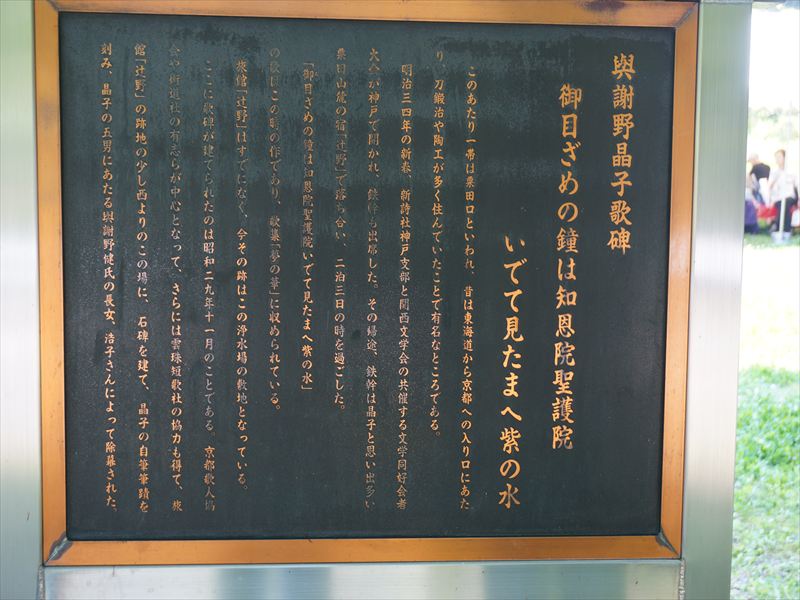 與謝野晶子歌碑
御目ざめの鐘は知恩院聖護院
いでて見たまへ紫の水
このあたり一帯は粟田口といわれ、昔は東海道から京都への入り口にあた
り、刀鍛冶や陶工が多く住んでいたことで有名なところである。
明治三四年の新春、新詩社神戸支部と関西文学会の共催する文学同好会者
大会が神戸で開かれ、鉄幹も出席した。その帰途、鉄幹は晶子と思い出多い
粟田山麓の宿「辻野」で落ち合い、二泊三日の時を過ごした。
「御目ざめの鐘は知恩院聖護院いでて見たまへ紫の水」
の歌はこの時の作であり、歌集「夢の華」に収められている。
旅館「辻野」はすでになく、今その跡はこの浄水場の敷地となっている。
ここに歌碑が建てられたのは昭和二九年十一月のことである。京都歌人協
会や街道社の有志らが中心となって、さらには雲珠短歌社の協力も得て、旅
館「辻野」の跡地の少し西よりのこの場に、石碑を建て、晶子の自筆筆蹟を
刻み、晶子の五男にあたる與謝野健氏の長女、浩子さんによって除幕された。